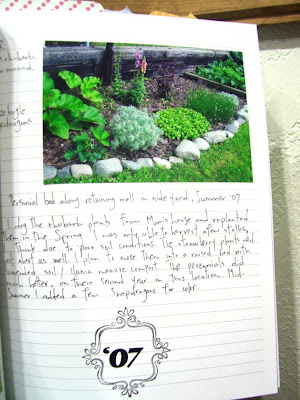 rhubarb
mound,
bugle
snapdragons
Perennial bed along retaining wall in side yard, Summer '07
I dug the rhubarb plants from Mom's house and replanted
them in the Spring. I was only able to harvest a few stalks,
I think due to poor soil conditions. The strawberry plants did
not fare as well. I plan to move them into a raised bed with
amended soil / llama manure compost. The perennials did
much better, on their second year in this location. Mid-
Summer I added a few snapdragons for color.
'07